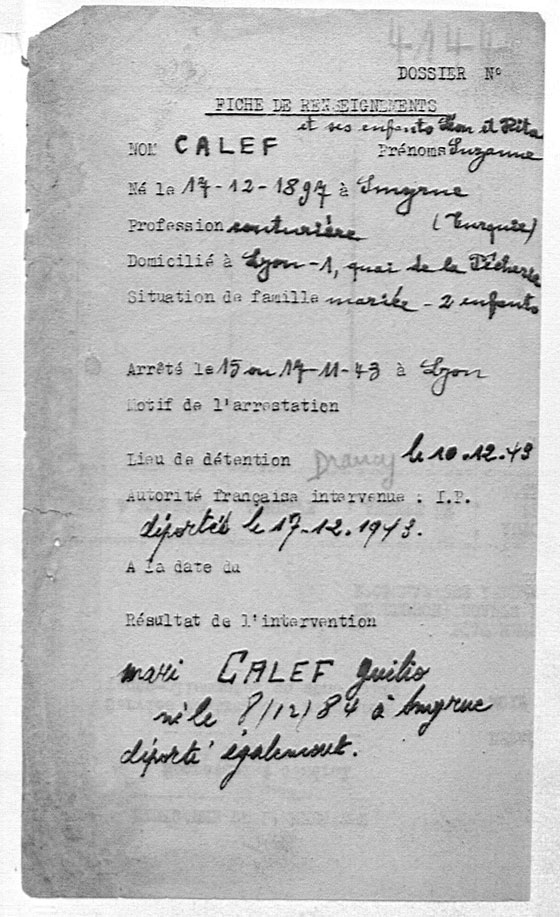 DOSSIER N°
FICHE DE RENSEIGNEMENTS
et ses enfants Léon et Rita
NOM CALEF Prénoms Suzanne
Né le 17-12-1897 à Smyrne
Profession couturière (Turquie)
Domicilié à Lyon-1, quai de la Pêcherie
Situation de famille mariée - 2 enfants
Arrêté le 15 ou 17-11-43 à Lyon
Motif de l'arrestation
Lieu de détention Drancy le 10.12.43
Autorité française intervenue : I.P.
déportés le 17-12.1943.
A la date du
Résultat de l'intervention
mari CALEF Guilio
né le 8/12/84 à Smyrne
déporté également.